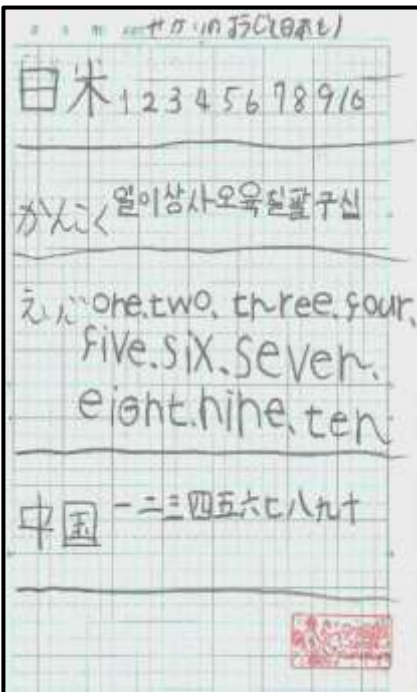 せかいのすうじ(日本も)
日米 1 2 3 4 5 6 7 8 9 10
かんこく 일이삼사오육칠팔구십
えいご one.two.three.four.
five.six.seven.
eight.nine.ten
中国 一二三四五六七八九十